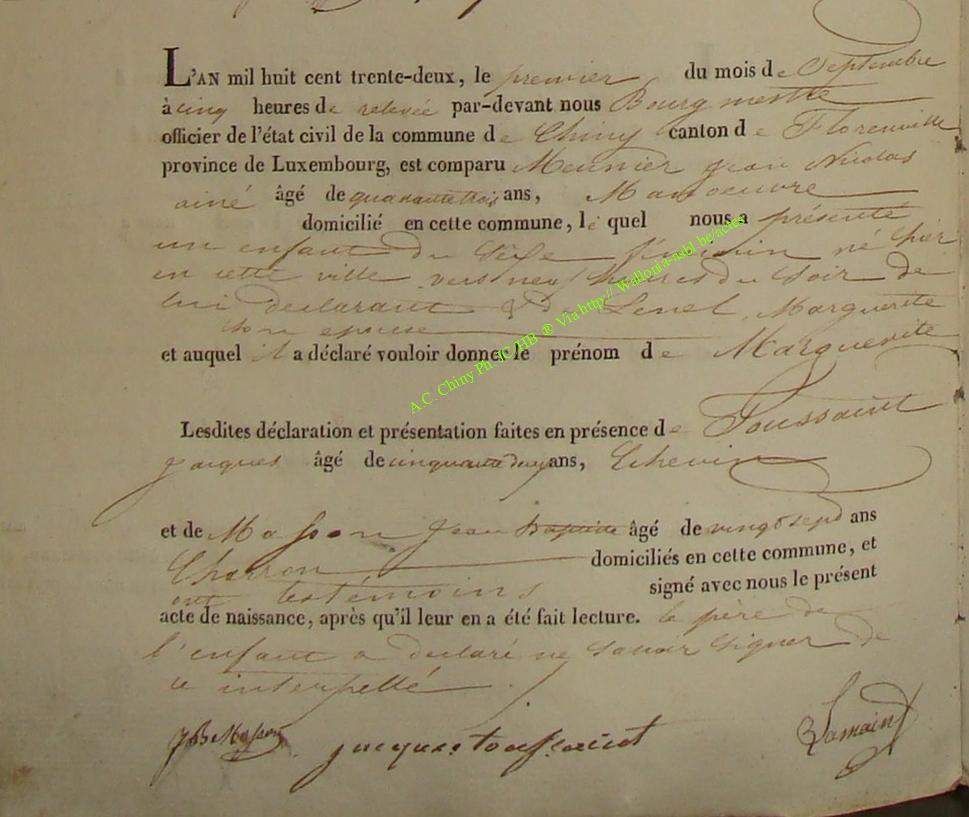 L'AN mil huit cent trente-deux, le premier du mois de Septembre
à cinq heures de relevée par-devant nous Bourgmestre
officier de l'état civil de la commune de Chiny canton de Florenville
province de Luxembourg, est comparu Meunier Jean Nicolas
ainé âgé de quarante trois ans, Manoeuvre
domicilié en cette commune, le quel nous a présenté
un enfant du sexe féminin né hier
en cette ville vers neuf heures du soir de
lui déclarant & de Lenel, Marguerite
son epouse
et auquel il a déclaré vouloir donner le prénom de Marguerite
A.C. Chiny Ph. JC HB ® Via http://. Wallonia-asbl.be/actes
Lesdites déclaration et présentation faites en présence de Toussaint
Jacques âgé de cinquante deux ans, Echevin
et de Masson Jean Baptiste âgé de vingt sept ans
Charron domiciliés en cette commune, et
ont les témoins signé avec nous le présent
acte de naissance, après qu'il leur en a été fait lecture. le père de
l'enfant a declaré ne savoir signer de
ce interpellé.
JB Masson jacque toussaint Lamain